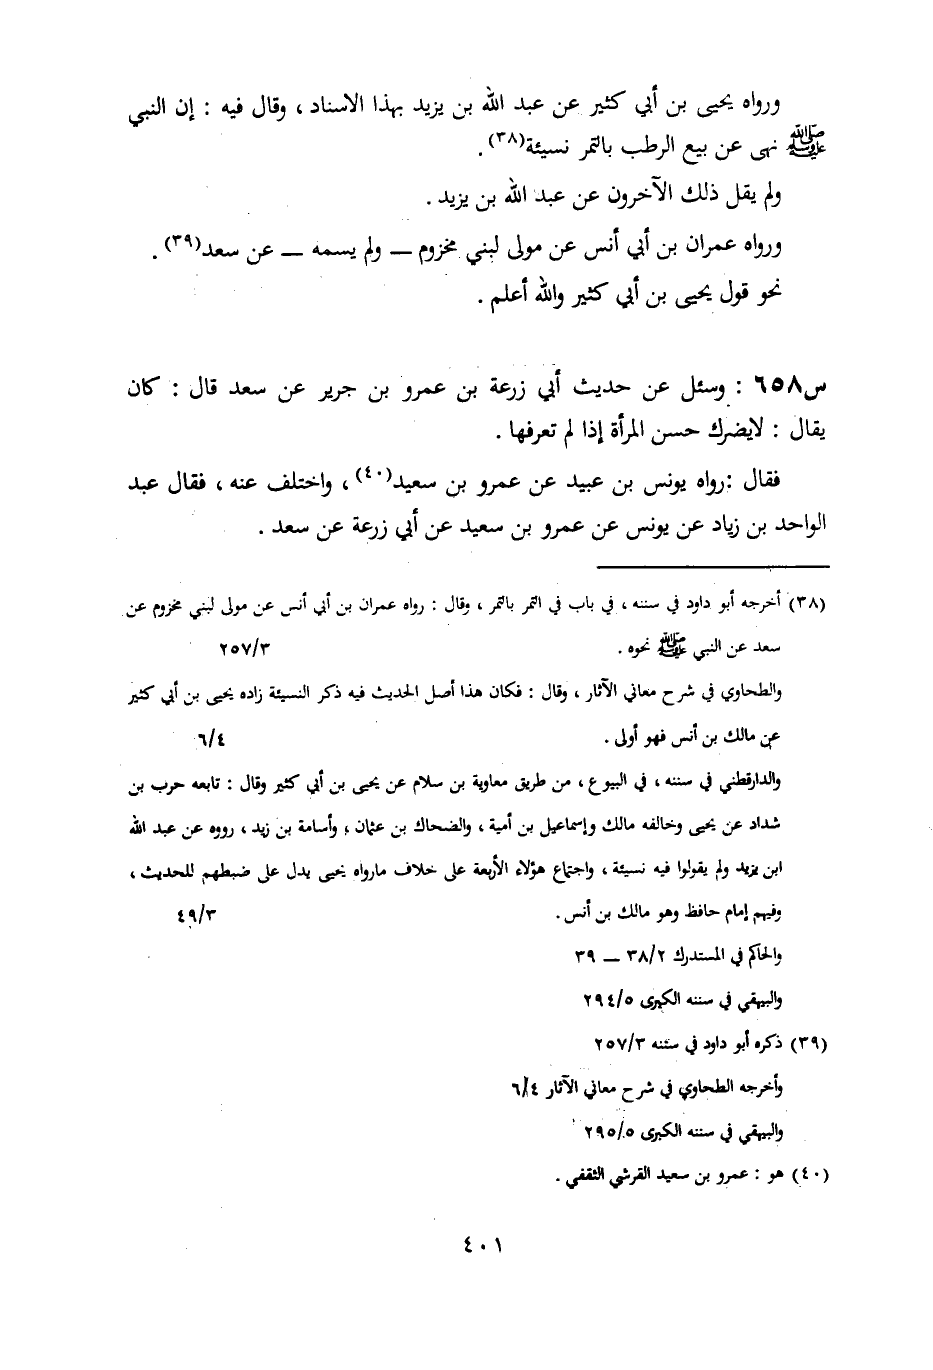 ورواه يحيى بن أبي كثير عن عبد الله بن يزيد بهذا الاسناد ، وقال فيه : إن النبي
ﷺ نهى عن بيع الرطب بالتمر نسيئة(٣٨) .
ولم يقل ذلك الآخرون عن عبد الله بن يزيد .
ورواه عمران بن أبي أنس عن مولى لبني مخزوم ــ ولم يسمه ــ عن سعد(٣٩) .
نحو قول يحيى بن أبي كثير والله أعلم .
س٦٥٨ : وسئل عن حديث أبي زرعة بن عمرو بن جرير عن سعد قال : كان
يقال : لايضرك حسن المرأة إذا لم تعرفها .
فقال :رواه يونس بن عبيد عن عمرو بن سعيد(٤٠) ، واختلف عنه ، فقال عبد
الواحد بن زياد عن يونس عن عمرو بن سعيد عن أبي زرعة عن سعد .
(٣٨) أخرجه أبو داود في سننه ، في باب في التمر بالتمر ، وقال : رواه عمران بن أبي أنس عن مولى لبني مخزوم عن
سعد عن النبي ﷺ نحوه . ٢٥٧/٣
والطحاوي في شرح معاني الآثار ، وقال : فكان هذا أصل الحديث فيه ذكر النسيئة زاده يحيى بن أبي كثير
عن مالك بن أنس فهو أولى . ٦/٤
والدارقطني في سننه ، في البيوع ، من طريق معاوية بن سلام عن يحيى بن أبي كثير وقال : تابعه حرب بن
شداد عن يحيى وخالفه مالك وإسماعيل بن أمية ، والضحاك بن عثمان ، وأسامة بن زيد ، رووه عن عبد الله
ابن يزيد ولم يقولوا فيه نسيئة ، واجتماع هؤلاء الأربعة على خلاف مارواه يحيى يدل على ضبطهم للحديث ،
وفيهم إمام حافظ وهو مالك بن أنس . ٤٩/٣
والحاكم في المستدرك ٣٨/٢ ــ ٣٩
والبيهقي في سننه الكبرى ٢٩٤/٥
(٣٩) ذكره أبو داود في سننه ٢٥٧/٣
وأخرجه الطحاوي في شرح معاني الآثار ٦/٤
والبيهقي في سننه الكبرى ٢٩٥/٥
(٤٠) هو : عمرو بن سعيد القرشي الثقفي .
٤٠١